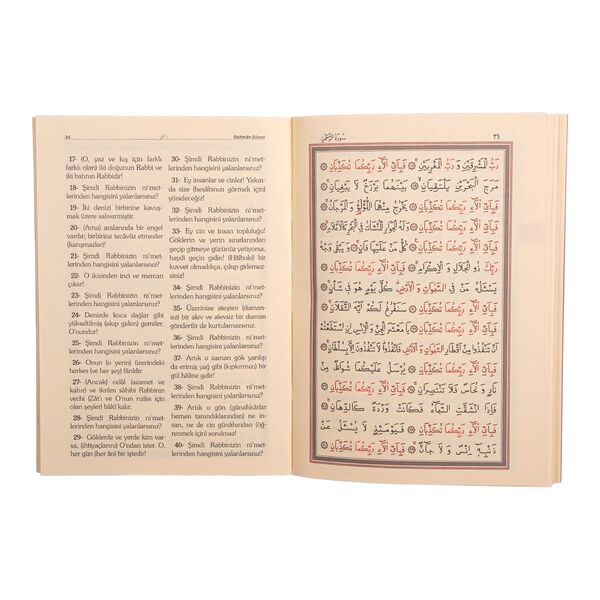 34
Rahmân Sûresi
17- (O, yaz ve kış için farklı
farklı olan) iki doğunun Rabbi ve
iki batının Rabbidir!
18- Şimdi Rabbinizin ni'met-
lerinden hangisini yalanlarsınız?
19- İki denizi birbirine kavuş-
mak üzere salıvermiştir.
20- (Ama) aralarında bir engel
vardır; birbirine tecâvüz etmezler
(karışmazlar)!
21- Şimdi Rabbinizin ni'met-
lerinden hangisini yalanlarsınız?
22- O ikisinden inci ve mercan
çıkar!
23- Şimdi Rabbinizin ni'met-
lerinden hangisini yalanlarsınız?
24- Denizde koca dağlar gibi
yükseltilmiş (akıp giden) gemiler,
O'nundur!
25- Şimdi Rabbinizin ni'met-
lerinden hangisini yalanlarsınız?
26- Onun (o yerin) üzerindeki
herkes (ve her şey) fânîdir.
27- (Ancak) celâl (azamet ve
kahır) ve ikrâm sâhibi Rabbinin
vechi (Zât'ı ve O'nun rızâsı için
olan şeyler) bâkî kalır.
28- Şimdi Rabbinizin ni'met-
lerinden hangisini yalanlarsınız?
29- Göklerde ve yerde kim var-
sa, (ihtiyaçlarını) O'ndan ister. O,
her gün (her ân) bir iştedir!
30- Şimdi Rabbinizin ni'met-
lerinden hangisini yalanlarsınız?
31- Ey insanlar ve cinler! Yakın-
da size (hesâbınızı görmek için)
yöneleceğiz!
32- Şimdi Rabbinizin ni'met-
lerinden hangisini yalanlarsınız?
33- Ey cin ve insan topluluğu!
Göklerin ve yerin sınırlarından
geçip gitmeye gücünüz yetiyorsa,
haydi geçin gidin! (Hâlbuki) bir
kuvvet olmadıkça, çıkıp gidemez-
siniz!
34- Şimdi Rabbinizin ni'met-
lerinden hangisini yalanlarsınız?
35- Üzerinize ateşten (duman-
sız) bir alev ve alevsiz bir duman
gönderilir de kurtulamazsınız.
36- Şimdi Rabbinizin ni'met-
lerinden hangisini yalanlarsınız?
37- Artık o zaman gök yarılıp
da erimiş yağ gibi (kıpkırmızı) bir
gül hâline gelir!
38- Şimdi Rabbinizin ni'met-
lerinden hangisini yalanlarsınız?
39- Artık o gün (günahkârlar
hemen tanındıklarından) ne in-
san, ne de cin günâhından (öğ-
renmek için) sorulmaz!
40- Şimdi Rabbinizin ni'met-
lerinden hangisini yalanlarsınız?
٣٤
سُورَةُ الرَّحْمٰنِ
رَبُّ الْمَشْرِقَيْنِ وَ رَبُّ الْمَغْرِبَيْنِ ﴿١٧﴾ فَبِاَيِّ اٰلَٓاءِ رَبِّكُمَا تُكَذِّبَانِ ﴿١٨﴾
مَرَجَ الْبَحْرَيْنِ يَلْتَقِيَانِ ﴿١٩﴾ بَيْنَهُمَا بَرْزَخٌ لَا يَبْغِيَانِ ﴿٢٠﴾
فَبِاَيِّ اٰلَٓاءِ رَبِّكُمَا تُكَذِّبَانِ ﴿٢١﴾ يَخْرُجُ مِنْهُمَا اللُّؤْلُؤُ وَ الْمَرْجَانُ ﴿٢٢﴾
فَبِاَيِّ اٰلَٓاءِ رَبِّكُمَا تُكَذِّبَانِ ﴿٢٣﴾ وَلَهُ الْجَوَارِ الْمُنْشَاٰتُ فِي الْبَحْرِ كَالْاَعْلَامِ ﴿٢٤﴾
فَبِاَيِّ اٰلَٓاءِ رَبِّكُمَا تُكَذِّبَانِ ﴿٢٥﴾ كُلُّ مَنْ عَلَيْهَا فَانٍ ﴿٢٦﴾ وَ يَبْقٰى وَجْهُ
رَبِّكَ ذُو الْجَلَالِ وَ الْاِكْرَامِ ﴿٢٧﴾ فَبِاَيِّ اٰلَٓاءِ رَبِّكُمَا تُكَذِّبَانِ ﴿٢٨﴾
يَسْـَٔلُهُ مَنْ فِي السَّمٰوَاتِ وَ الْاَرْضِ كُلَّ يَوْمٍ هُوَ فِي شَاْنٍ ﴿٢٩﴾
فَبِاَيِّ اٰلَٓاءِ رَبِّكُمَا تُكَذِّبَانِ ﴿٣٠﴾ سَنَفْرُغُ لَكُمْ اَيُّهَ الثَّقَلَانِ ﴿٣١﴾
فَبِاَيِّ اٰلَٓاءِ رَبِّكُمَا تُكَذِّبَانِ ﴿٣٢﴾ يَا مَعْشَرَ الْجِنِّ وَ الْاِنْسِ اِنِ اسْتَطَعْتُمْ
اَنْ تَنْفُذُوا مِنْ اَقْطَارِ السَّمٰوَاتِ وَ الْاَرْضِ فَانْفُذُوا لَا تَنْفُذُونَ اِلَّا بِسُلْطَانٍ ﴿٣٣﴾
فَبِاَيِّ اٰلَٓاءِ رَبِّكُمَا تُكَذِّبَانِ ﴿٣٤﴾ يُرْسَلُ عَلَيْكُمَا شُوَاظٌ مِنْ
نَارٍ وَ نُحَاسٌ فَلَا تَنْتَصِرَانِ ﴿٣٥﴾ فَبِاَيِّ اٰلَٓاءِ رَبِّكُمَا تُكَذِّبَانِ ﴿٣٦﴾
فَاِذَا انْشَقَّتِ السَّمَٓاءُ فَكَانَتْ وَرْدَةً كَالدِّهَانِ ﴿٣٧﴾
فَبِاَيِّ اٰلَٓاءِ رَبِّكُمَا تُكَذِّبَانِ ﴿٣٨﴾ فَيَوْمَئِذٍ لَا يُسْـَٔلُ عَنْ
ذَنْبِهِ اِنْسٌ وَ لَا جَانٌّ ﴿٣٩﴾ فَبِاَيِّ اٰلَٓاءِ رَبِّكُمَا تُكَذِّبَانِ ﴿٤٠﴾